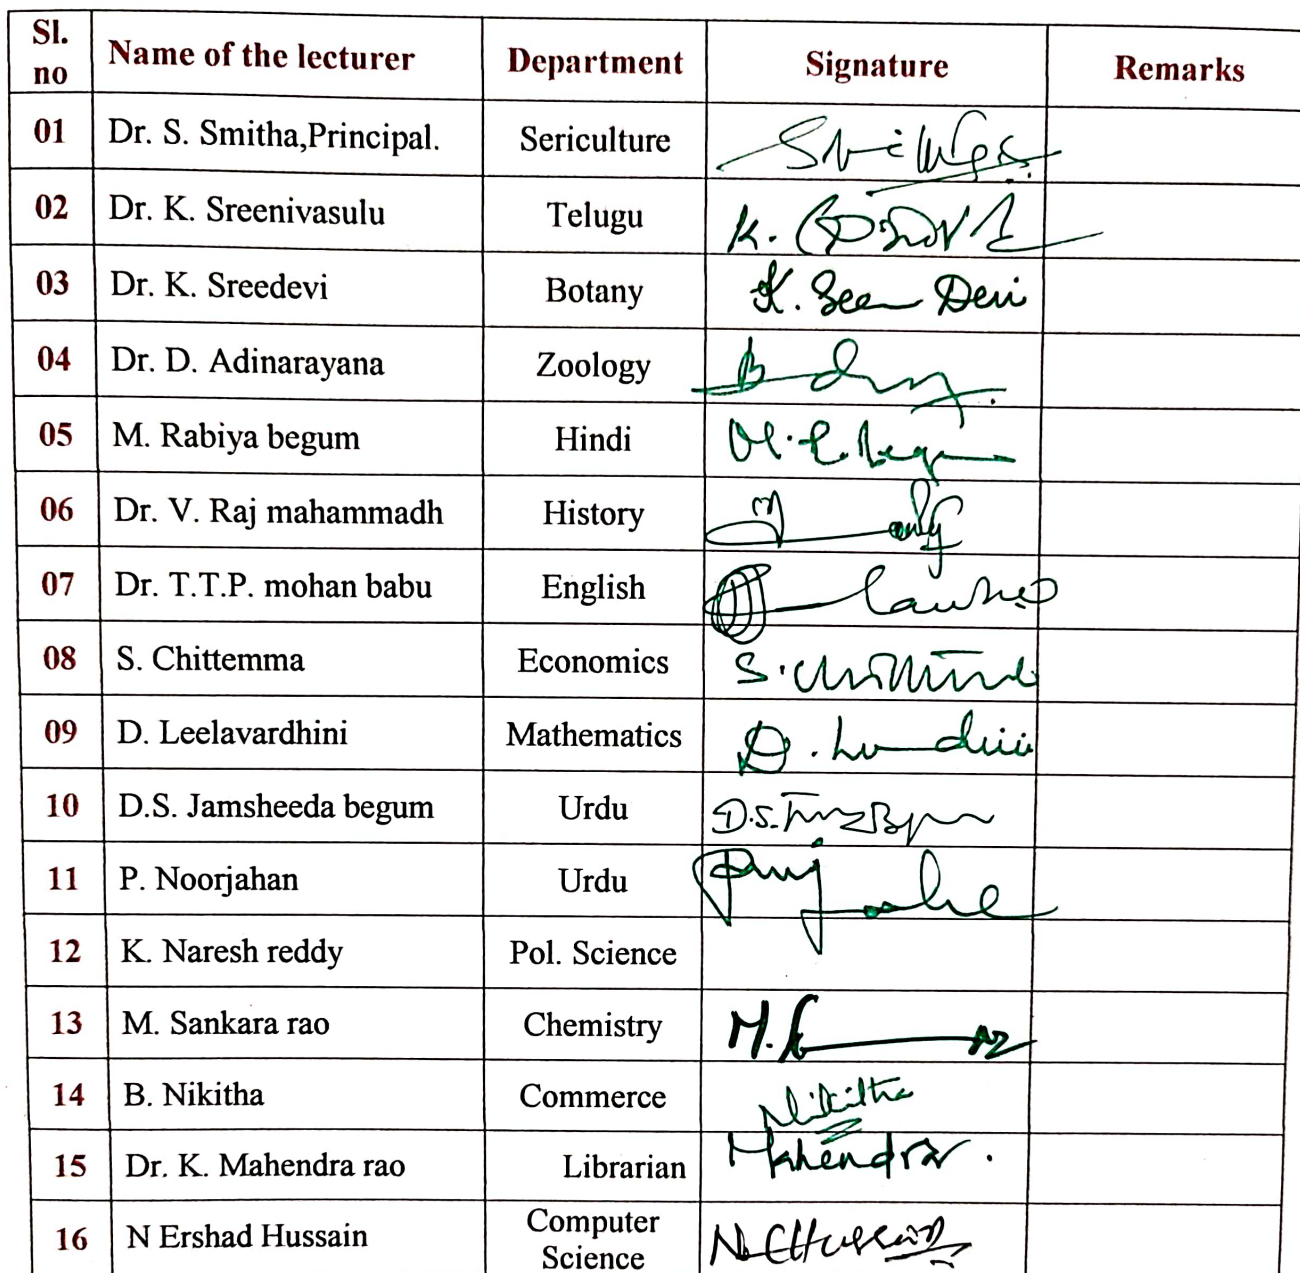 Sl. no Name of the lecturer Department Signature Remarks
01 Dr. S. Smitha,Principal. Sericulture
02 Dr. K. Sreenivasulu Telugu K.
03 Dr. K. Sreedevi Botany K. Devi
04 Dr. D. Adinarayana Zoology
05 M. Rabiya begum Hindi
06 Dr. V. Raj mahammadh History
07 Dr. T.T.P. mohan babu English
08 S. Chittemma Economics S.
09 D. Leelavardhini Mathematics D.
10 D.S. Jamsheeda begum Urdu D.S.
11 P. Noorjahan Urdu
12 K. Naresh reddy Pol. Science
13 M. Sankara rao Chemistry M.
14 B. Nikitha Commerce Nikitha
15 Dr. K. Mahendra rao Librarian Mahendra
16 N Ershad Hussain Computer Science